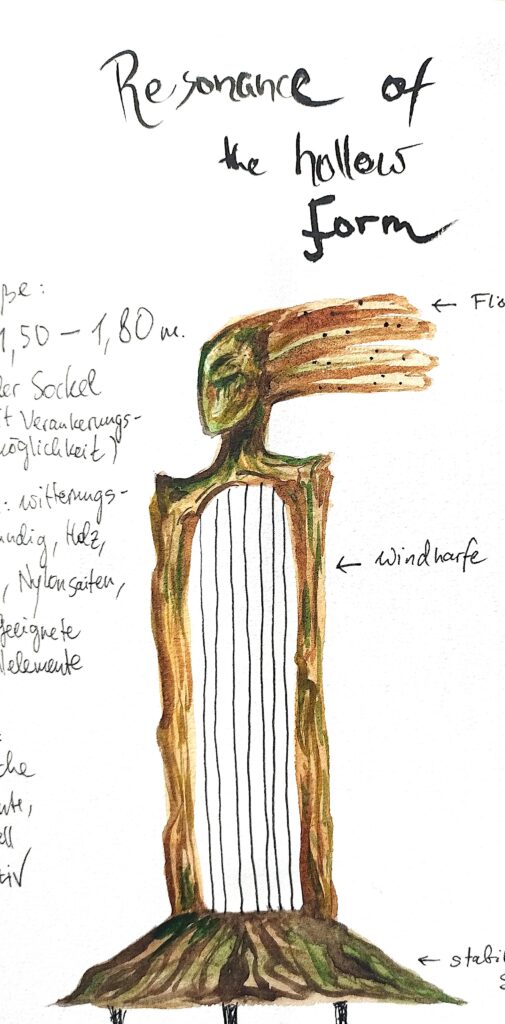 Resonance of
the hollow
form
1,50 – 1,80 m.
Sockel
Verankerungs-
möglichkeit)
witterungs-
Holz,
Nylonsaiten,
geeignete
elemente
← Flö
← Windharfe
← stabi